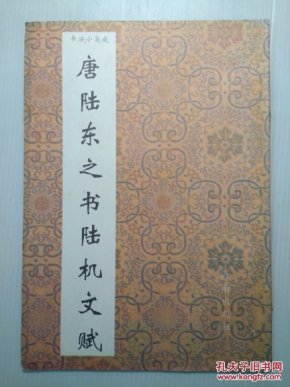 书法小集成
唐陆东之书陆机文赋
孔夫子旧书网
kongfz.com